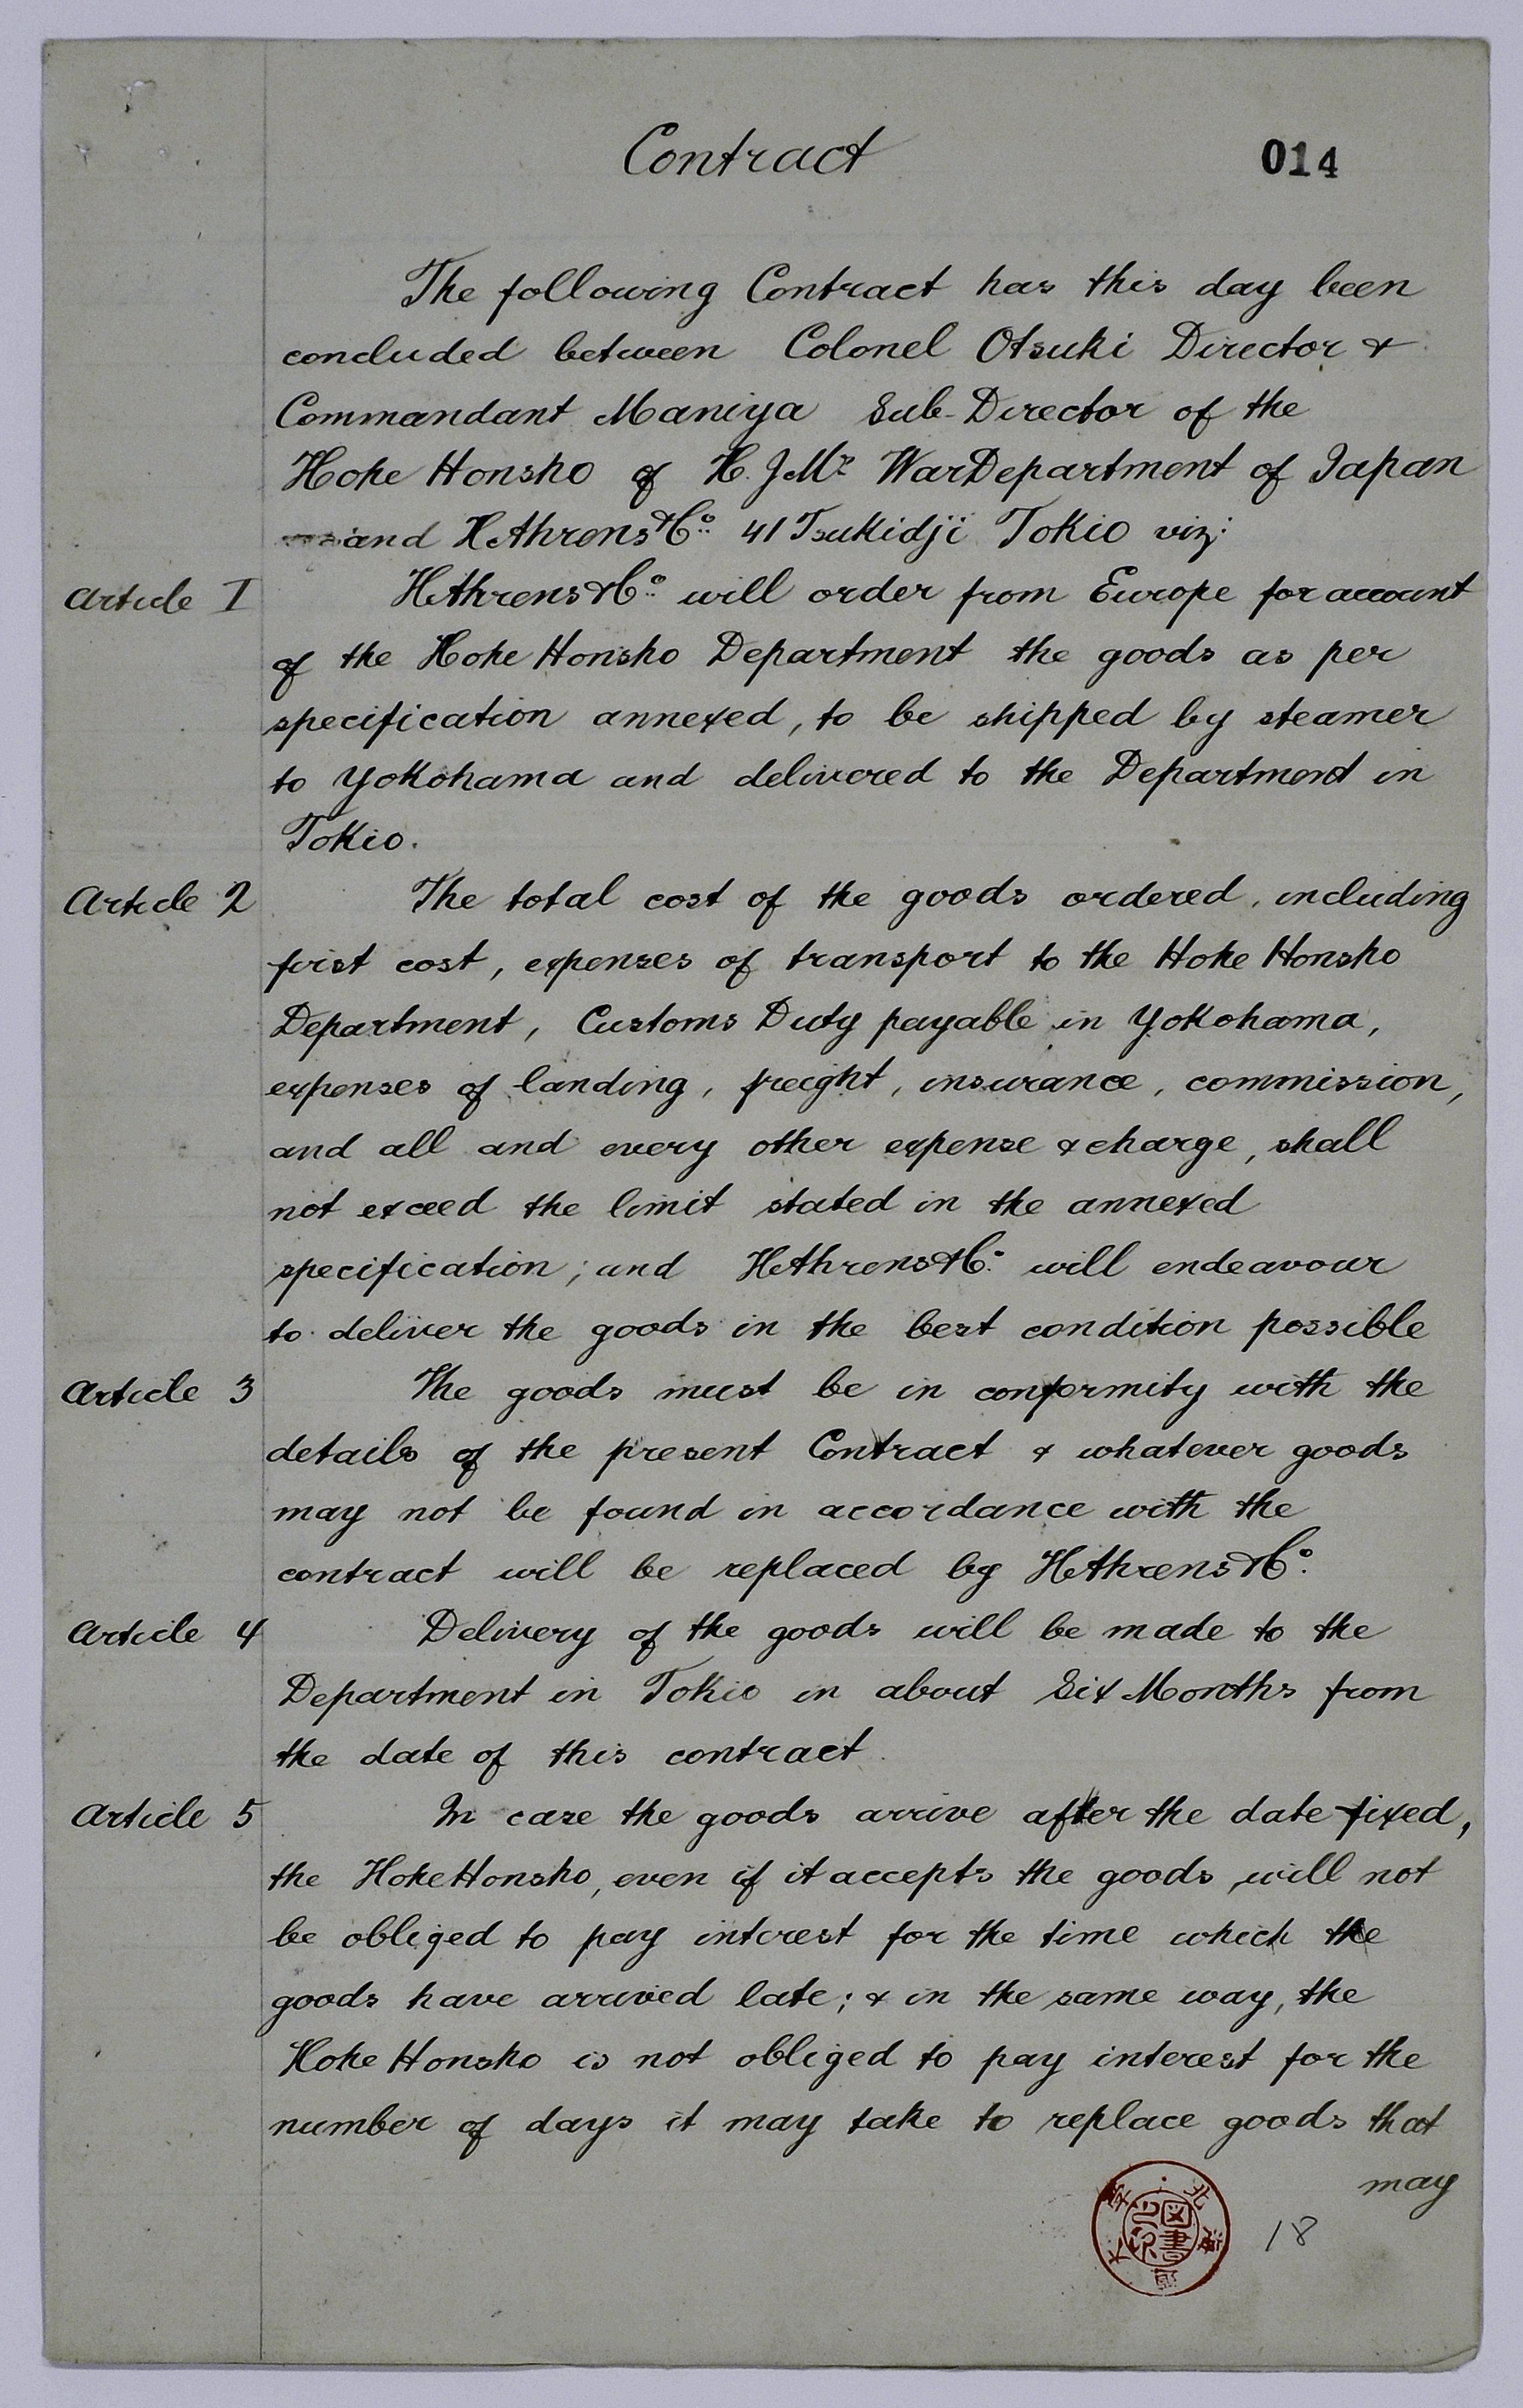 Contract
014
The following Contract has this day been
concluded between Colonel Otsuki Director &
Commandant Maniya Sub-Director of the
Hohe Honsho of H.J.M's War Department of Japan
and H Ahrens & Co. 41 Tsukidji Tokio viz:
Article I
H Ahrens & Co. will order from Europe for account
of the Hohe Honsho Department the goods as per
specification annexed, to be shipped by steamer
to Yokohama and delivered to the Department in
Tokio.
Article 2
The total cost of the goods ordered, including
first cost, expenses of transport to the Hohe Honsho
Department, Customs Duty payable in Yokohama,
expenses of landing, freight, insurance, commission,
and all and every other expense & charge, shall
not exceed the limit stated in the annexed
specification; and H Ahrens & Co. will endeavour
to deliver the goods in the best condition possible
Article 3
The goods must be in conformity with the
details of the present Contract & whatever goods
may not be found in accordance with the
contract will be replaced by H Ahrens & Co.
Article 4
Delivery of the goods will be made to the
Department in Tokio in about Six Months from
the date of this contract.
Article 5
In case the goods arrive after the date fixed,
the Hohe Honsho, even if it accepts the goods, will not
be obliged to pay interest for the time which the
goods have arrived late; & in the same way, the
Hohe Honsho is not obliged to pay interest for the
number of days it may take to replace goods that
may
18